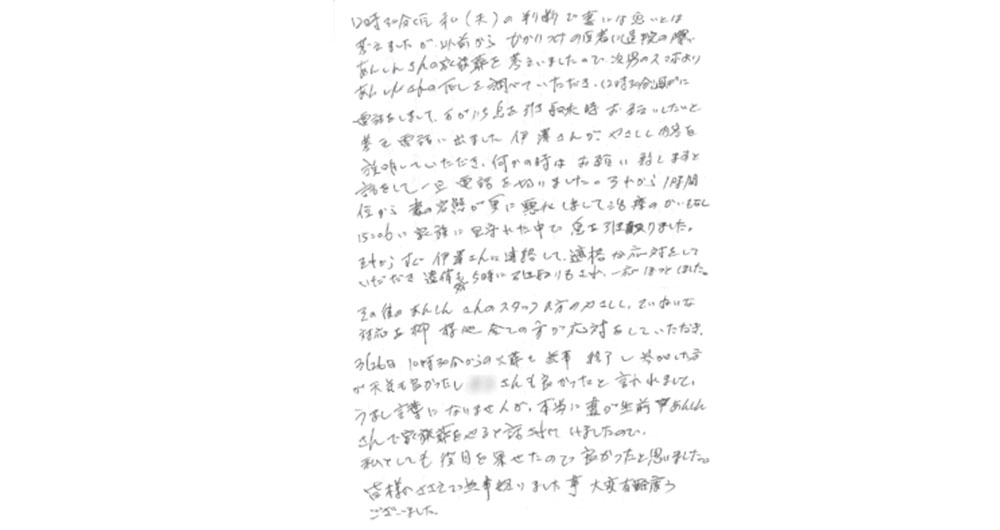 12時30分位 私(夫)の判断で妻には悪いとは
考えましたが、以前から かかりつけの医者に退院の際、
あんしんさんの家族葬を考えいましたので、次男のスマホより
あんしんさんの を調べていただき、12時30分過ぎに
電話をしまして、万が一息を引き取る時 お願いしたいと
考え 電話に出ました 伊澤さんが やさしく内容を
説明していただき、何かの時は お願い致しますと
話をして 一旦 電話を切りました。それから 1時間
位から 妻の容態が更に悪化しまして治療のかいもなし
15:06に家族に見守れた中で 息を引き取りました。
それから すぐ 伊澤さんに連絡して、適格な応対をして
いただき 遺体を 5時に引き取りもされ、一応ほっとしました。
その後のあんしんさんのスタッフ の方のやさしく、ていねいな
対応を柳 様他 全ての方が応対をしていただき、
3/26日 10時30分からの火葬も 無事 終了し 参加した方
が天気も良かったし さんも良かったと 言われまして、
うまく言葉になりませんが、本当に妻が生前 あんしん
さんで家族葬をやると話されていましたので、
私としても 役目を果せたので 良かったと思いました。
皆様のささえで無事終りました事 大変有難う
ございました。